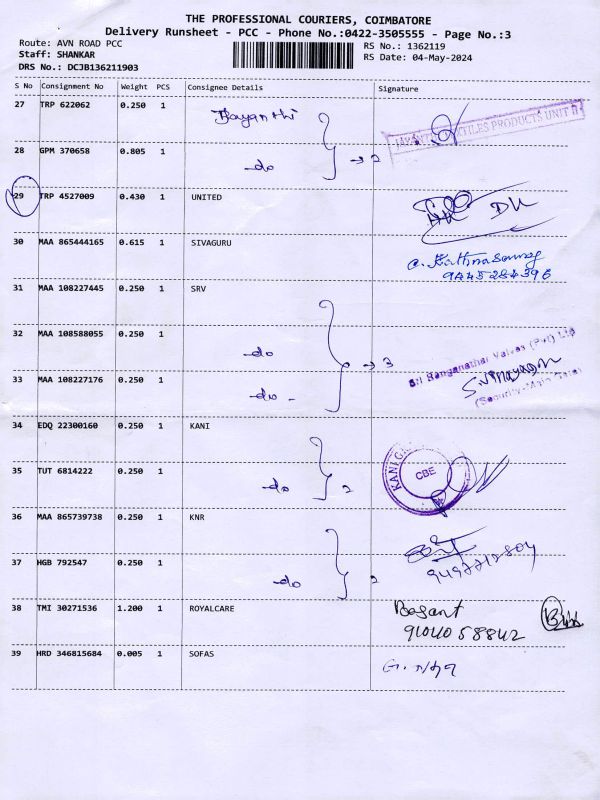 THE PROFESSIONAL COURIERS, COIMBATORE
Delivery Runsheet - PCC - Phone No.:0422-3505555 - Page No.:3
Route: AVN ROAD PCC
Staff: SHANKAR
DRS No.: DCJB136211903
RS No.: 1362119
RS Date: 04-May-2024
S No Consignment No Weight PCS Consignee Details Signature
27 TRP 622062 0.250 1 Jayanthi
TEXTILES PRODUCTS UNIT II
28 GPM 370658 0.805 1 -do → 2
29 TRP 4527009 0.430 1 UNITED
30 MAA 865444165 0.615 1 SIVAGURU
9445284396
31 MAA 108227445 0.250 1 SRV
32 MAA 108588055 0.250 1 -do → 3
Sri Ranganathar Valves (Pvt) Ltd
33 MAA 108227176 0.250 1 -do -
S. Vinayagam
34 EDQ 22300160 0.250 1 KANI
KANI CBE
35 TUT 6814222 0.250 1 -do 2
36 MAA 865739738 0.250 1 KNR
37 HGB 792547 0.250 1 -do 2
38 TMI 30271536 1.200 1 ROYALCARE Basant
39 HRD 346815684 0.005 1 SOFAS